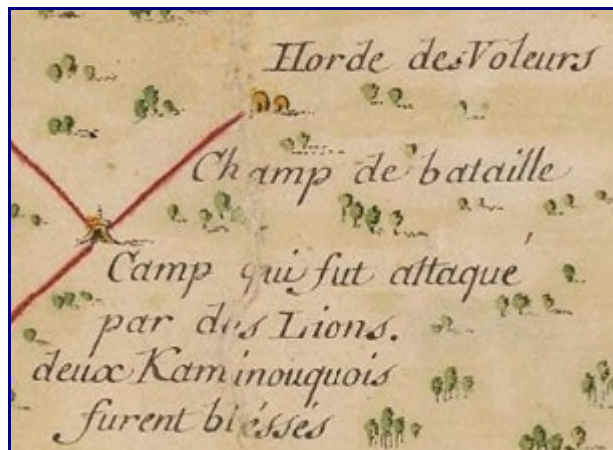 Horde des Voleurs
Champ de bataille
Camp qui fut attaqué
par des Lions.
deux Kaminouquois
furent bléssés